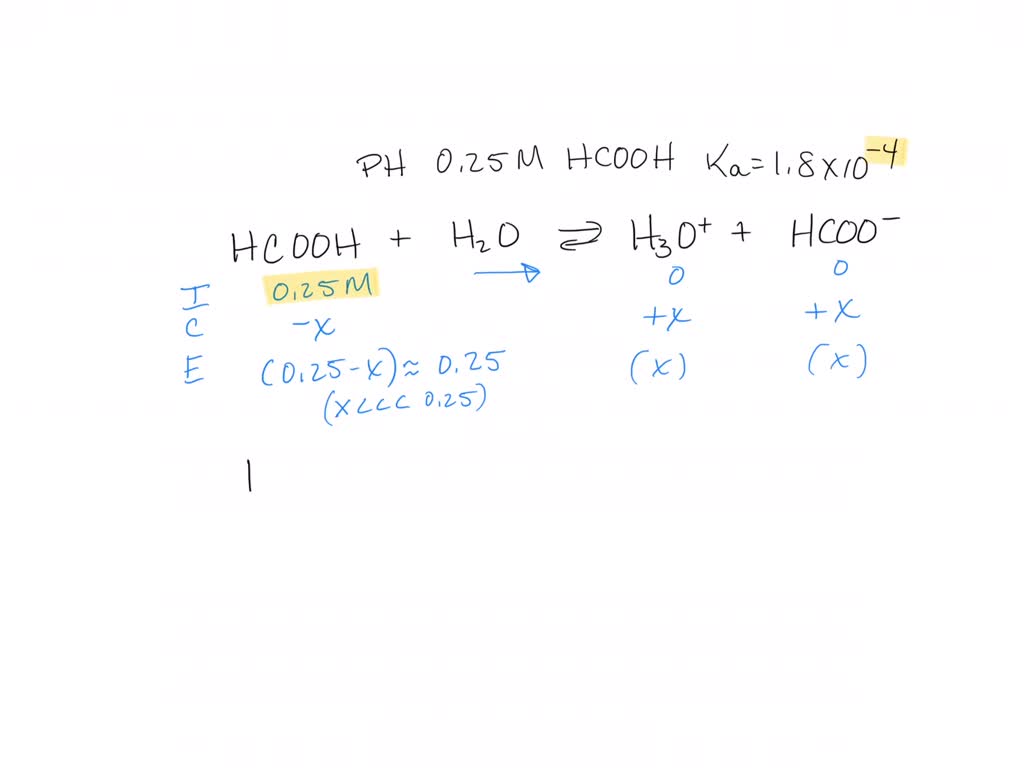 PH 0.25M HCOOH Ka=1.8x10⁻⁴
HCOOH + H₂O ⇌ H₃O⁺ + HCOO⁻
I 0.25M → 0 0
C -x +x +x
E (0.25-x)≈ 0.25 (x) (x)
(x<<< 0.25)